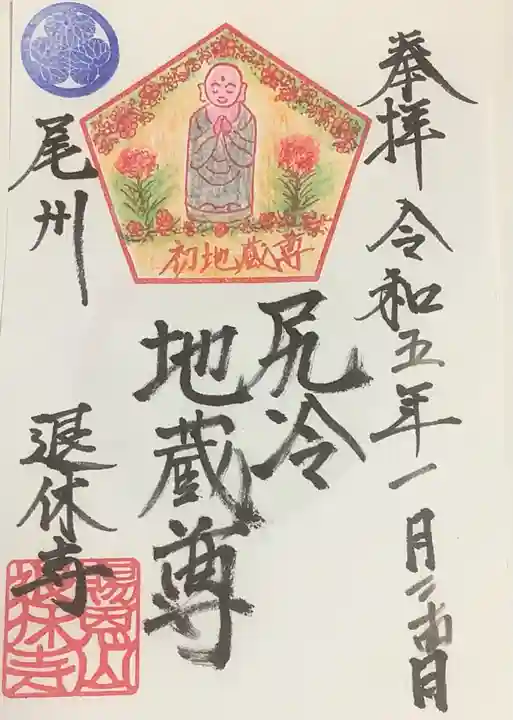 奉拝 令和五年一月二十四日
尻冷
地蔵尊
初地蔵尊
尾州 退休寺
賜恩山
退休寺